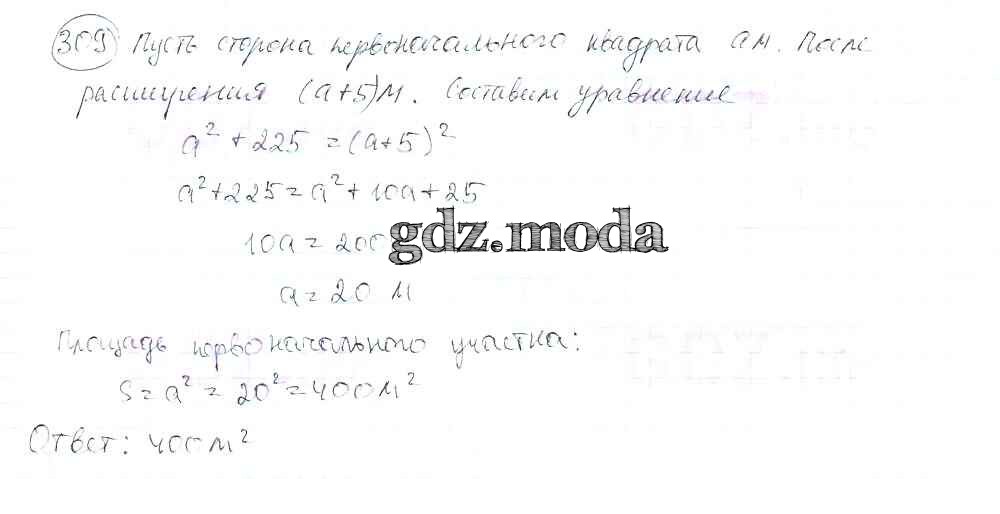 309 Пусть сторона первоначального квадрата a м. После
расширения (a+5)м. Составим уравнение
a² + 225 = (a+5)²
a²+225=a²+10a+25
10a = 200
gdz.moda
a = 20 м
Площадь первоначального участка:
S = a² = 20² = 400м²
Ответ: 400м²